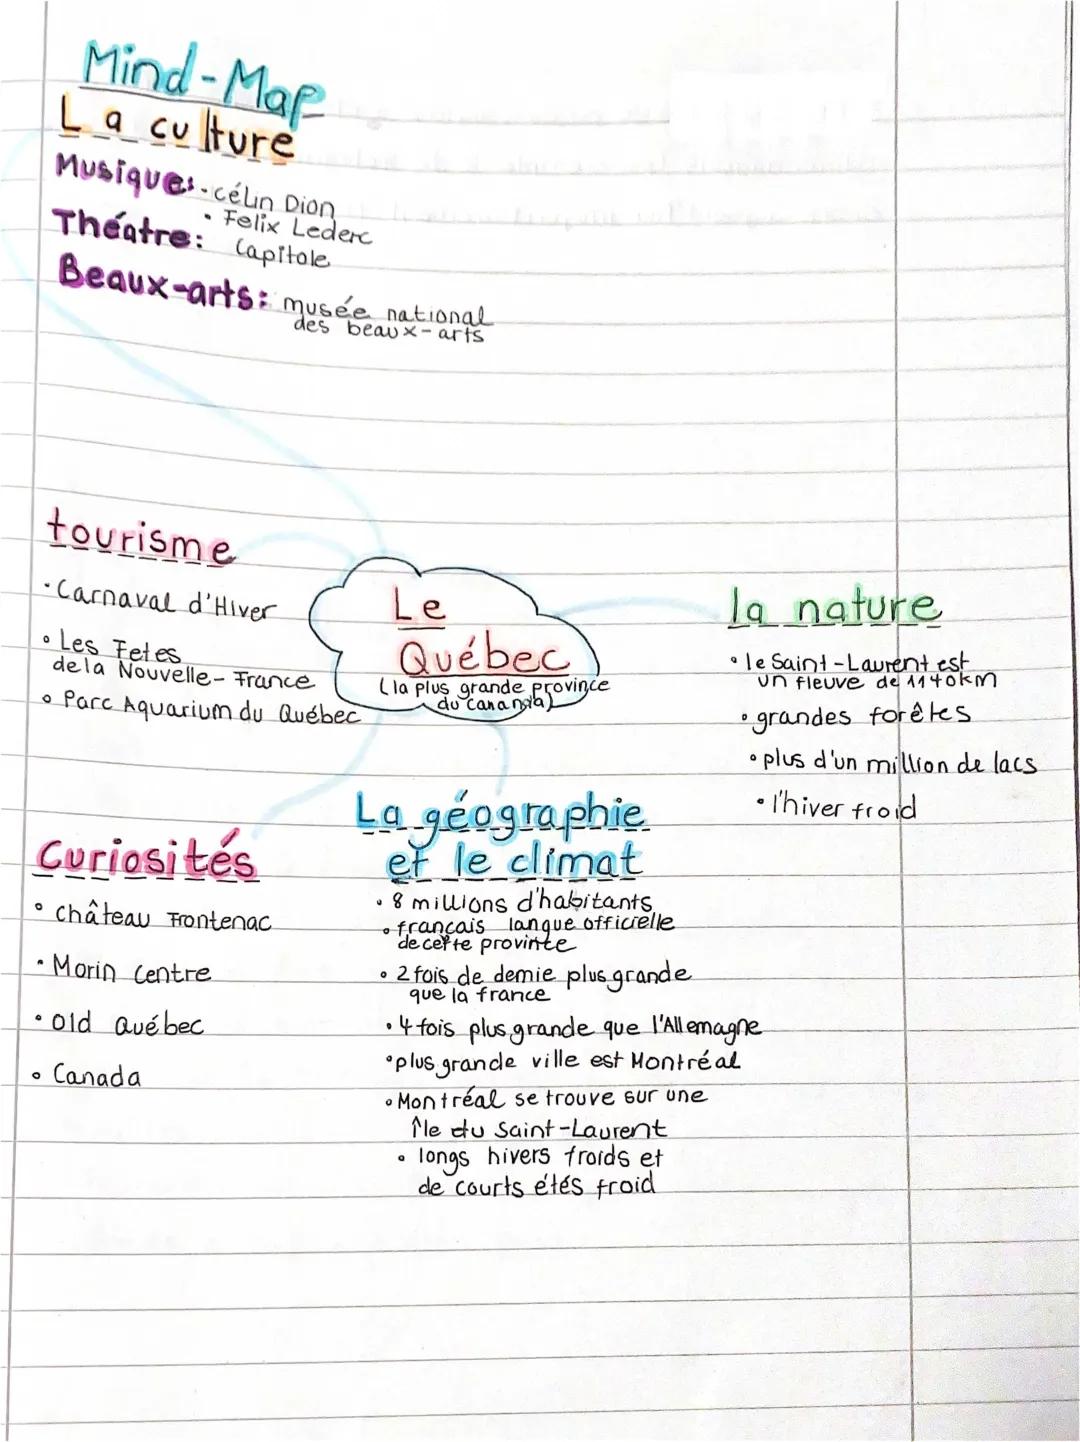 Mind-Map
La culture
Musique: - célin Dion
• Felix Lederc
Théatre: Capitole
Beaux-arts: musée national
des beaux-arts
tourisme
• Carnaval d'Hiver
• Les Fetes
de la Nouvelle-France
• Parc Aquarium du Québec
Le
Québec
(la plus grande province
du cananda)
la nature
• le Saint-Laurent est
un fleuve de 1140km
• grandes forêtes
• plus d'un million de lacs
• l'hiver froid
Curiosités
• château Frontenac
• Morin Centre
• old Québec
• Canada
La géographie
et le climat
• 8 millions d'habitants
• français langue officielle
de cette province
• 2 fois de demie plus grande
que la france
• 4 fois plus grande que l'Allemagne
• plus grande ville est Montréal
• Montréal se trouve sur une
Île du Saint-Laurent
• longs hivers froids et
de courts étés froid